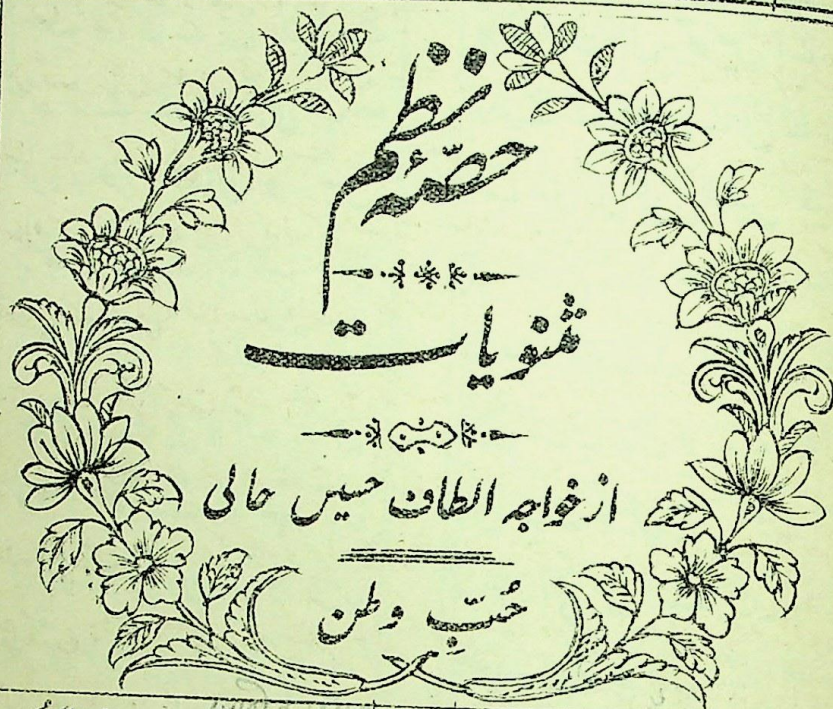 حصّۂ نظم
مثنویات
از خواجہ الطاف حسین حالی
حُبِّ وطن